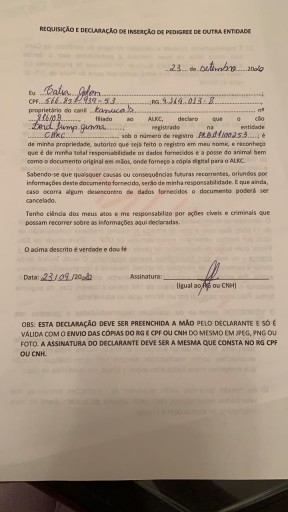 REQUISIÇÃO E DECLARAÇÃO DE INSERÇÃO DE PEDIGREE DE OUTRA ENTIDADE
23 de setembro 2020
Eu
CPF RG
proprietário do canil nº
filiado ao ALKC, declaro que o cão
registrado na entidade
CBKC sob o número de registro ; é
de minha propriedade, autorizo que seja feito o registro em meu nome, e reconheço
que é de minha total responsabilidade os dados fornecidos e a posse do animal bem
como o documento original em mãos, onde forneço a cópia digital para o ALKC.
Sabendo-se que quaisquer causas ou consequências futuras recorrentes, oriundos por
informações deste documento fornecido, serão de minha responsabilidade. E que ainda,
caso ocorra algum desencontro de dados fornecidos o documento poderá ser
cancelado.
Tenho ciência dos meus atos e me responsabilizo por ações cíveis e criminais que
possam recorrer sobre as informações aqui declaradas.
O acima descrito é verdade e dou fé
Data: 23/09/2020 Assinatura:
(Igual ao RG ou CNH)
OBS: ESTA DECLARAÇÃO DEVE SER PREENCHIDA A MÃO PELO DECLARANTE E SÓ É
VÁLIDA COM O ENVIO DAS CÓPIAS DO RG E CPF OU CNH DO MESMO EM JPEG, PNG OU
FOTO. A ASSINATURA DO DECLARANTE DEVE SER A MESMA QUE CONSTA NO RG CPF
OU CNH.